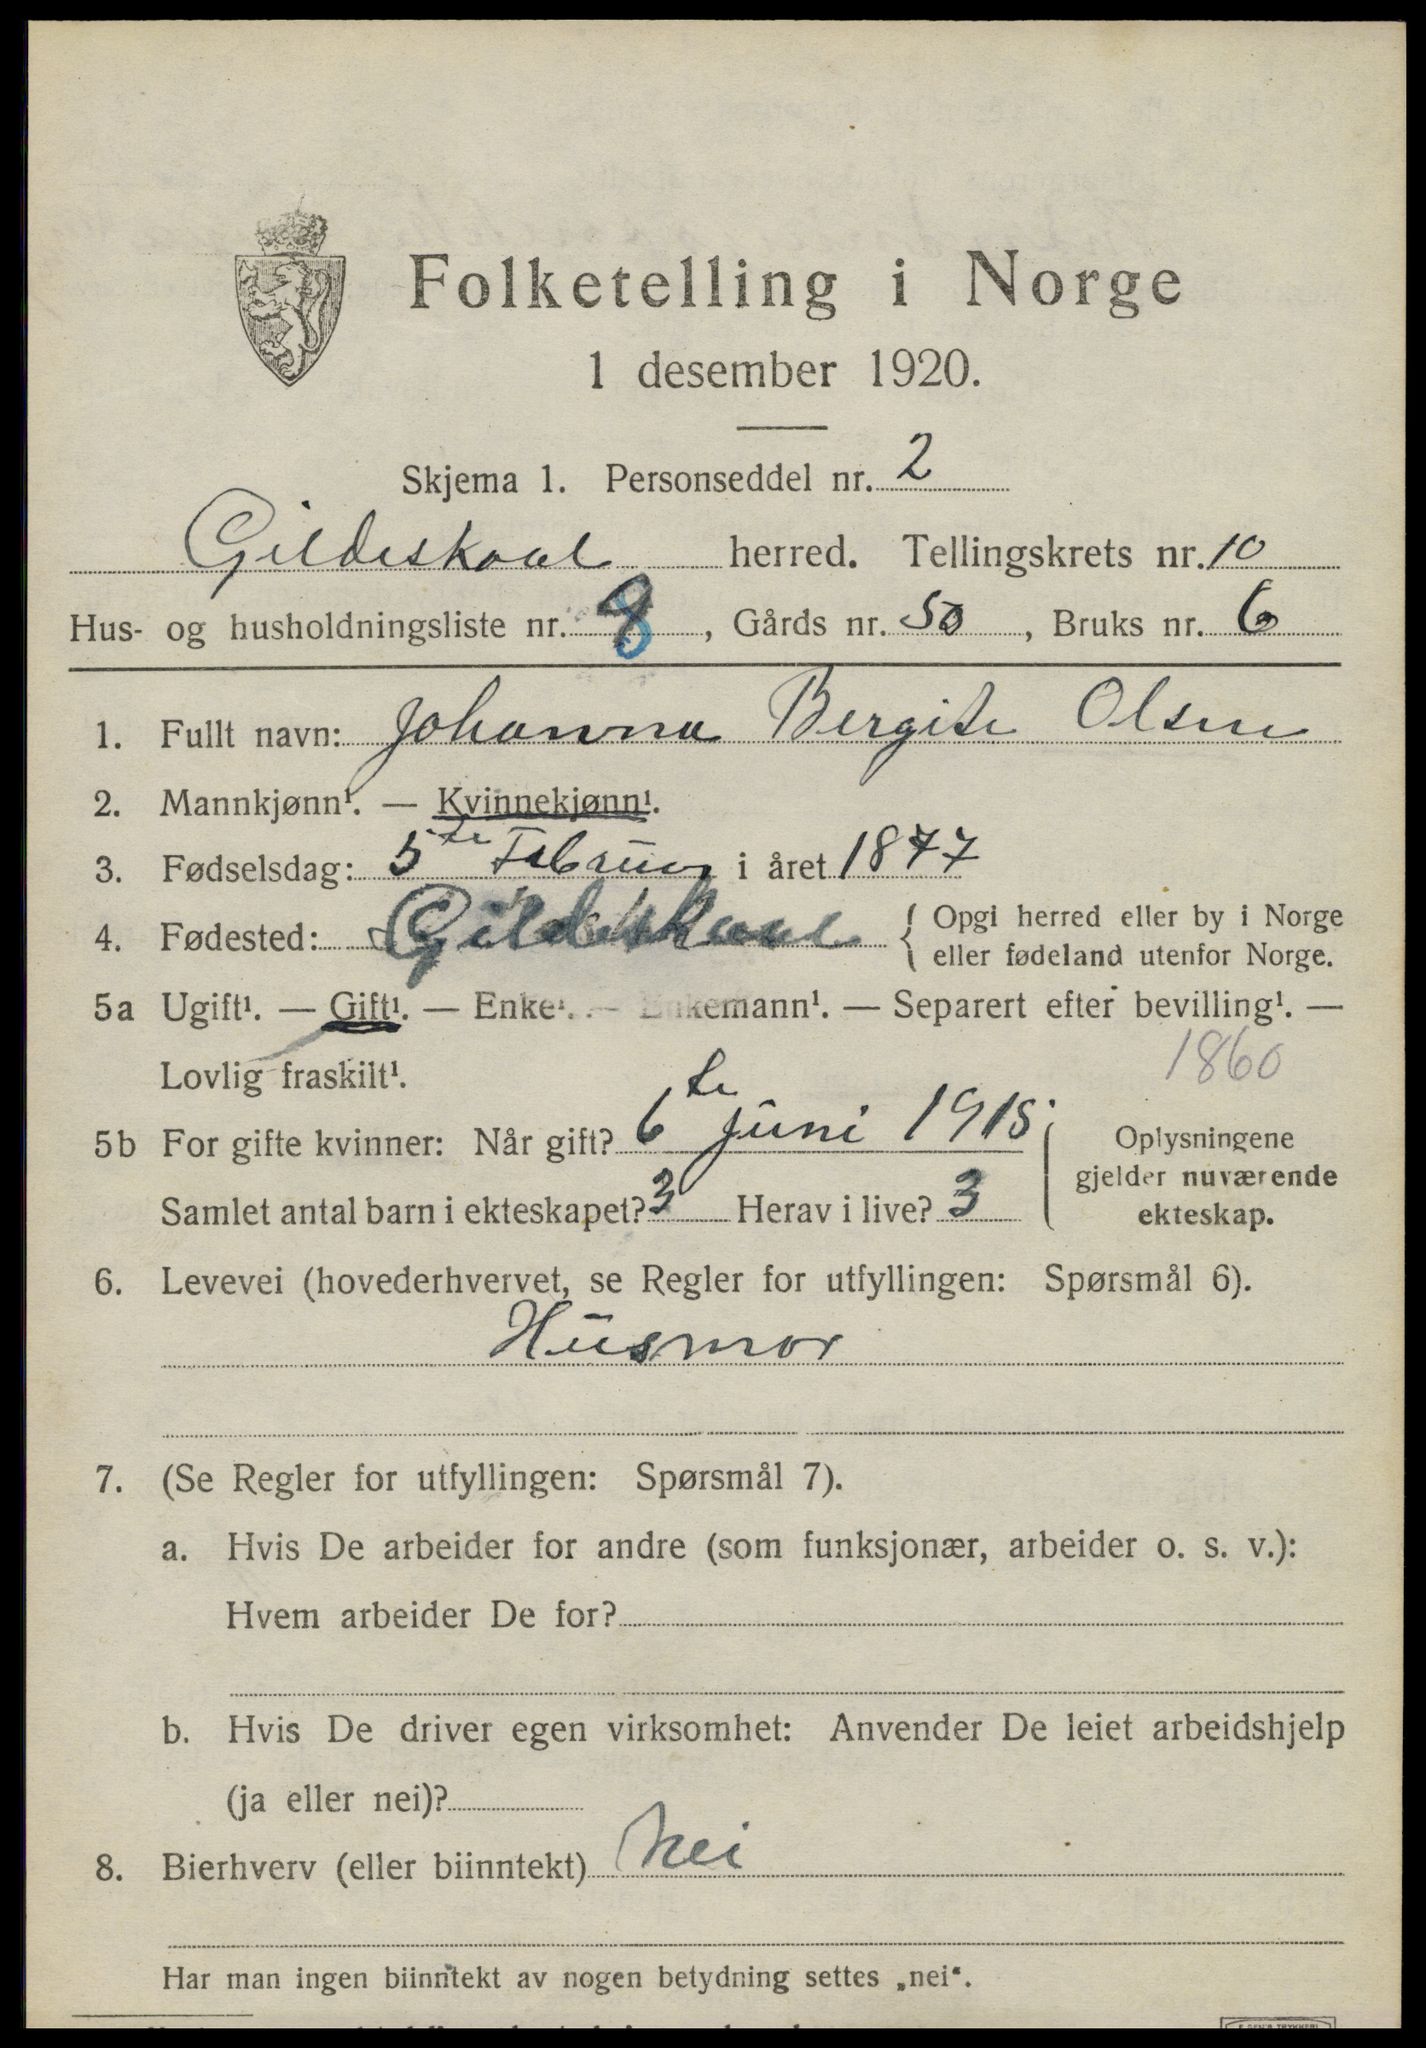 Folketelling i Norge
1 desember 1920.
Skjema 1. Personseddel nr. 2
Gildeskaal herred. Tellingskrets nr. 10
Hus- og husholdningsliste nr. 8, Gårds nr. 50, Bruks nr. 6
1. Fullt navn: Johanna Bergite Olsen
2. Mannkjønn¹. — Kvinnekjønn¹.
3. Fødselsdag: 5te Februar i året 1877
4. Fødested: Gildeskaal { Opgi herred eller by i Norge
eller fødeland utenfor Norge.
5a Ugift¹. — Gift¹. — Enke¹. — Enkemann¹. — Separert efter bevilling¹. —
Lovlig fraskilt¹. 1860
5b For gifte kvinner: Når gift? 6te Juni 1915
Samlet antal barn i ekteskapet? 3 Herav i live? 3
Oplysningene
gjelder nuværende
ekteskap.
6. Levevei (hovederhvervet, se Regler for utfyllingen: Spørsmål 6).
Husmor
7. (Se Regler for utfyllingen: Spørsmål 7).
a. Hvis De arbeider for andre (som funksjonær, arbeider o. s. v.):
Hvem arbeider De for?
b. Hvis De driver egen virksomhet: Anvender De leiet arbeidshjelp
(ja eller nei)?
8. Bierhverv (eller biinntekt) Nei
Har man ingen biinntekt av nogen betydning settes „nei“.